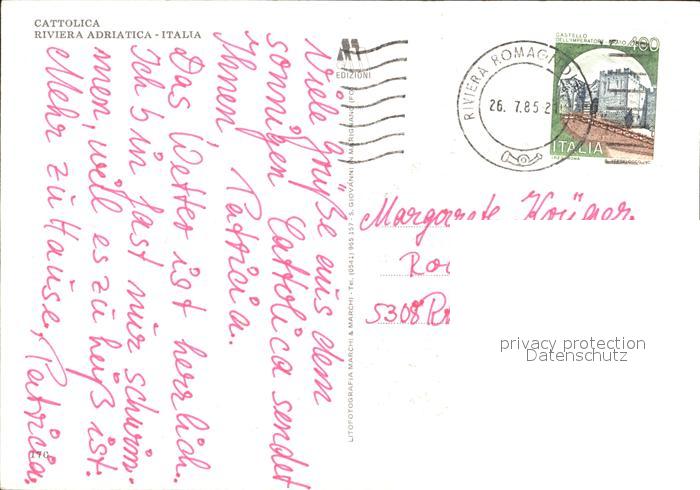 CATTOLICA
RIVIERA ADRIATICA - ITALIA
Viele Grüße aus dem
sonnigen Cattolica sendet
Ihnen Patricia.
Das Wetter ist herrlich.
Ich bin fast nur schwim-
men, weil es zu heiß ist.
Mehr zu Hause, Patricia.
EDIZIONI
LITOFOTOGRAFIA MARCHI & MARCHI - Tel. (0541) 965 157 - S. GIOVANNI IN MARIGNANO (FO)
RIVIERA ROMAGNOL
26. 7.85
CASTELLO
DELL'IMPERATORE
400
ITALIA
Margarete
5308
privacy protection
Datenschutz